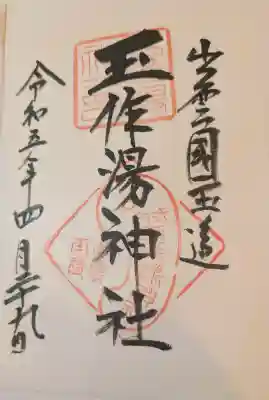 出雲國玉造
玉作湯神社
令和五年四月二十九日